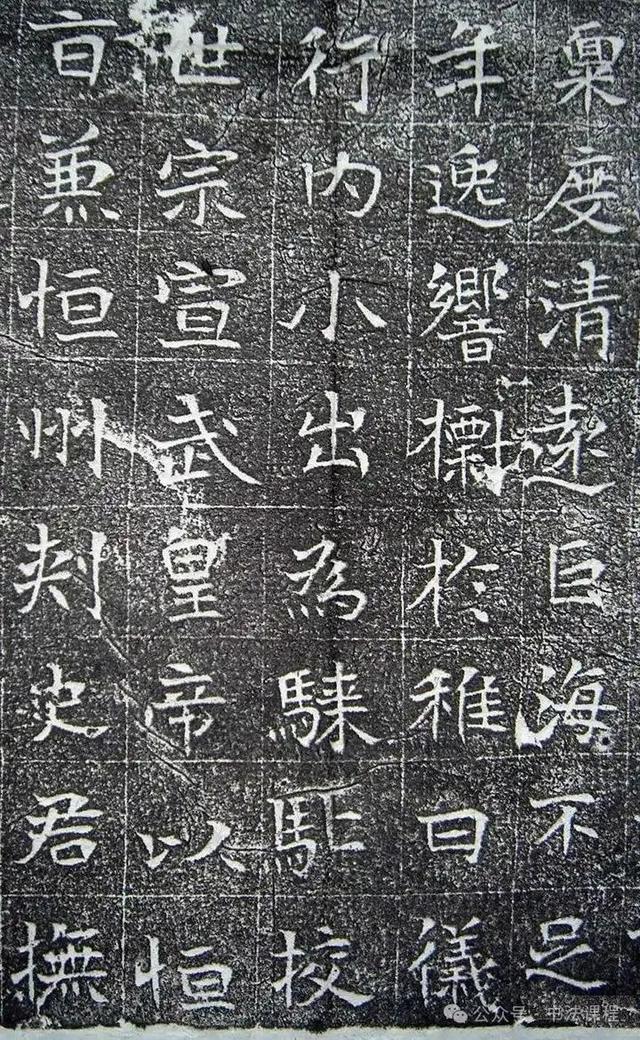 稟度清遠巨海不足
年逸響標於稚日儀
行内小出為騋駈挍
世宗宣武皇帝以恒
百兼恒州刾史君撫
公众号:中法课程